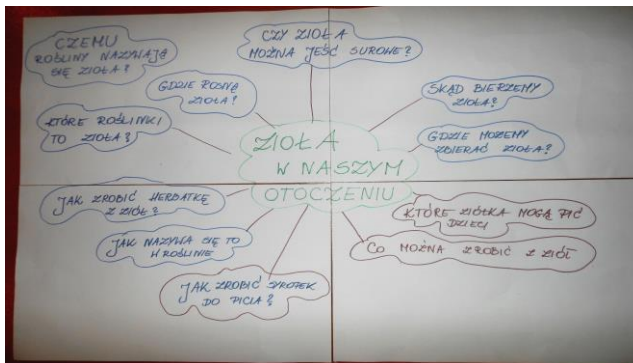 CZEMU
ROŚLINY NAZYWAJĄ
SIĘ ZIOŁA?
CZY ZIOŁA
MOŻNA JEŚĆ SUROWE?
GDZIE ROSNĄ
ZIOŁA?
SKĄD BIERZEMY
ZIOŁA?
KTÓRE ROŚLINKI
TO ZIOŁA?
GDZIE MOŻEMY
ZBIERAĆ ZIOŁA?
ZIOŁA
W NASZYM
OTOCZENIU
JAK ZROBIĆ HERBATKĘ
Z ZIÓŁ?
KTÓRE ZIÓŁKA MOGĄ PIĆ
DZIECI
JAK NAZYWA SIĘ TO
W ROŚLINIE
CO MOŻNA ZROBIĆ Z ZIÓŁ
JAK ZROBIĆ SYROPEK
DO PICIA?